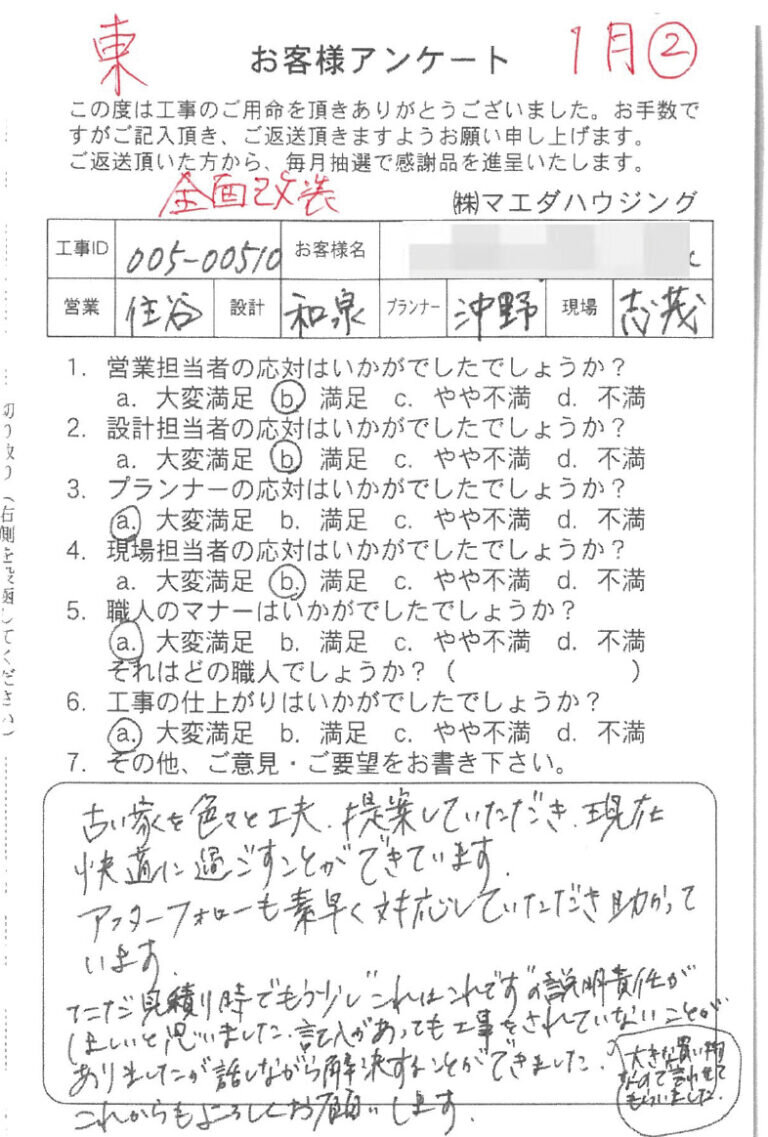 東
お客様アンケート
1月②
この度は工事のご用命を頂きありがとうございました。お手数で
すがご記入頂き、ご返送頂きますようお願い申し上げます。
ご返送頂いた方から、毎月抽選で感謝品を進呈いたします。
全面改装
㈱マエダハウジング
工事ID 005-00510 お客様名
営業 住谷 設計 和泉 プランナー 沖野 現場 志茂
1. 営業担当者の応対はいかがでしたでしょうか?
a. 大変満足 b. 満足 c. やや不満 d. 不満
2. 設計担当者の応対はいかがでしたでしょうか?
a. 大変満足 b. 満足 c. やや不満 d. 不満
3. プランナーの応対はいかがでしたでしょうか?
a. 大変満足 b. 満足 c. やや不満 d. 不満
4. 現場担当者の応対はいかがでしたでしょうか?
a. 大変満足 b. 満足 c. やや不満 d. 不満
5. 職人のマナーはいかがでしたでしょうか?
a. 大変満足 b. 満足 c. やや不満 d. 不満
それはどの職人でしょうか?( )
6. 工事の仕上がりはいかがでしたでしょうか?
a. 大変満足 b. 満足 c. やや不満 d. 不満
7. その他、ご意見・ご要望をお書き下さい。
古い家を色々と工夫、提案していただき、現在
快適に過ごすことができています。
アフターフォローも素早く対応していただき助かって
います。
ただ見積り時でもう少し"これはこれです"の説明責任が
ほしいと思いました。記入があっても工事をされていないことが
ありましたが話しながら解決することができました。
これからもよろしくお願いします。
大きな買い物
なので言わせて
もらいました。
切り取り(右側を投函してください)